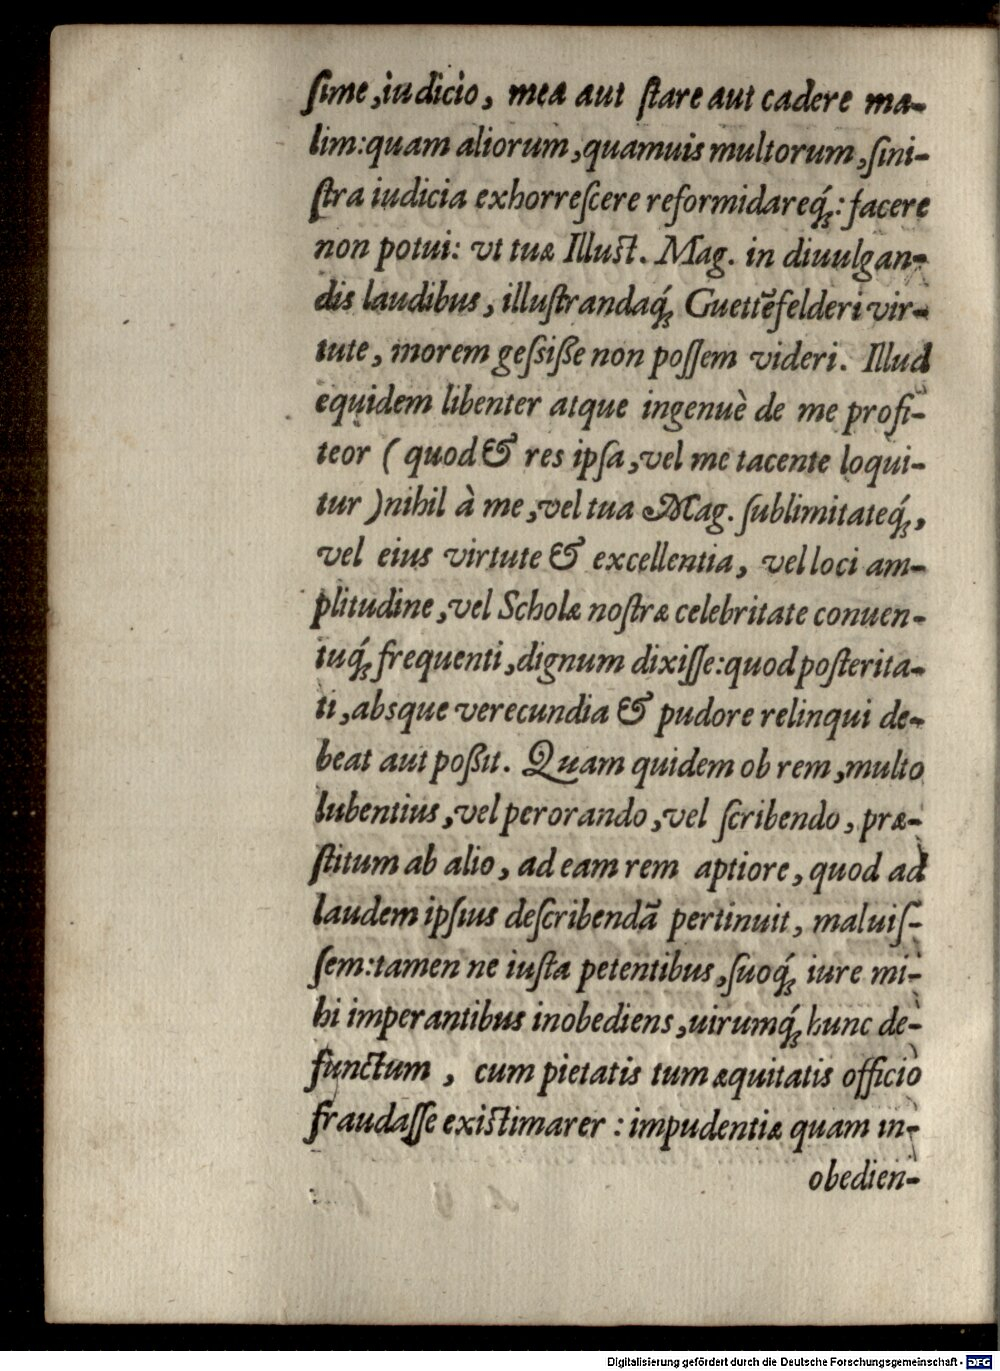 ſime, iudicio, mea aut ſtare aut cadere ma-
lim: quam aliorum, quamuis multorum, ſini-
ſtra iudicia exhorreſcere reformidareq́;: facere
non potui: vt tuæ Illuſt. Mag. in diuulgan-
dis laudibus, illuſtrandaq́; Guettēfelderi vir-
tute, morem geſsiſſe non poſſem videri. Illud
equidem libenter atque ingenuè de me profi-
teor (quod & res ipſa, vel me tacente loqui-
tur) nihil à me, vel tua Mag. ſublimitateq́;,
vel eius virtute & excellentia, vel loci am-
plitudine, vel Scholæ noſtræ celebritate conuen-
tuq́; frequenti, dignum dixiſſe: quod poſterita-
ti, absque verecundia & pudore relinqui de-
beat aut poßit. Quam quidem ob rem, multo
lubentius, vel perorando, vel ſcribendo, præ-
ſtitum ab alio, ad eam rem aptiore, quod ad
laudem ipſius deſcribendā pertinuit, maluiſ-
ſem: tamen ne iuſta petentibus, ſuoq́; iure mi-
hi imperantibus inobediens, uirumq́; hunc de-
functum, cum pietatis tum æquitatis officio
fraudaſſe exiſtimarer: impudentiæ quam in-
obedien-
Digitalisierung gefördert durch die Deutsche Forschungsgemeinschaft - DFG